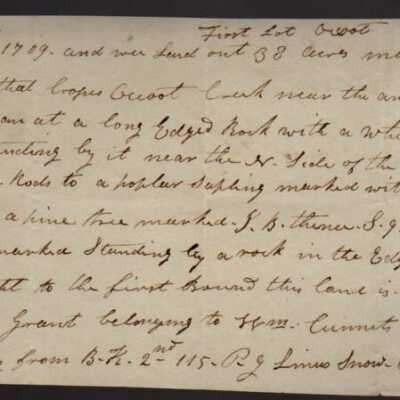 First Lot Ocoot
1709. and wee Laid out 38 acres m
that Cropes Ocoot Creek near the
an at a long Edged Rock with a whi
nding by it near the N. Side of the
Rods to a poplar Sapling marked wit
a pine tree marked. J. B. thence. S.
marked Standing by a rock in the Edg
ht to the first Bound this land is
Grant belonging to Wm. Cunnits
from B. K. 2nd 115. P. J Linus Snow